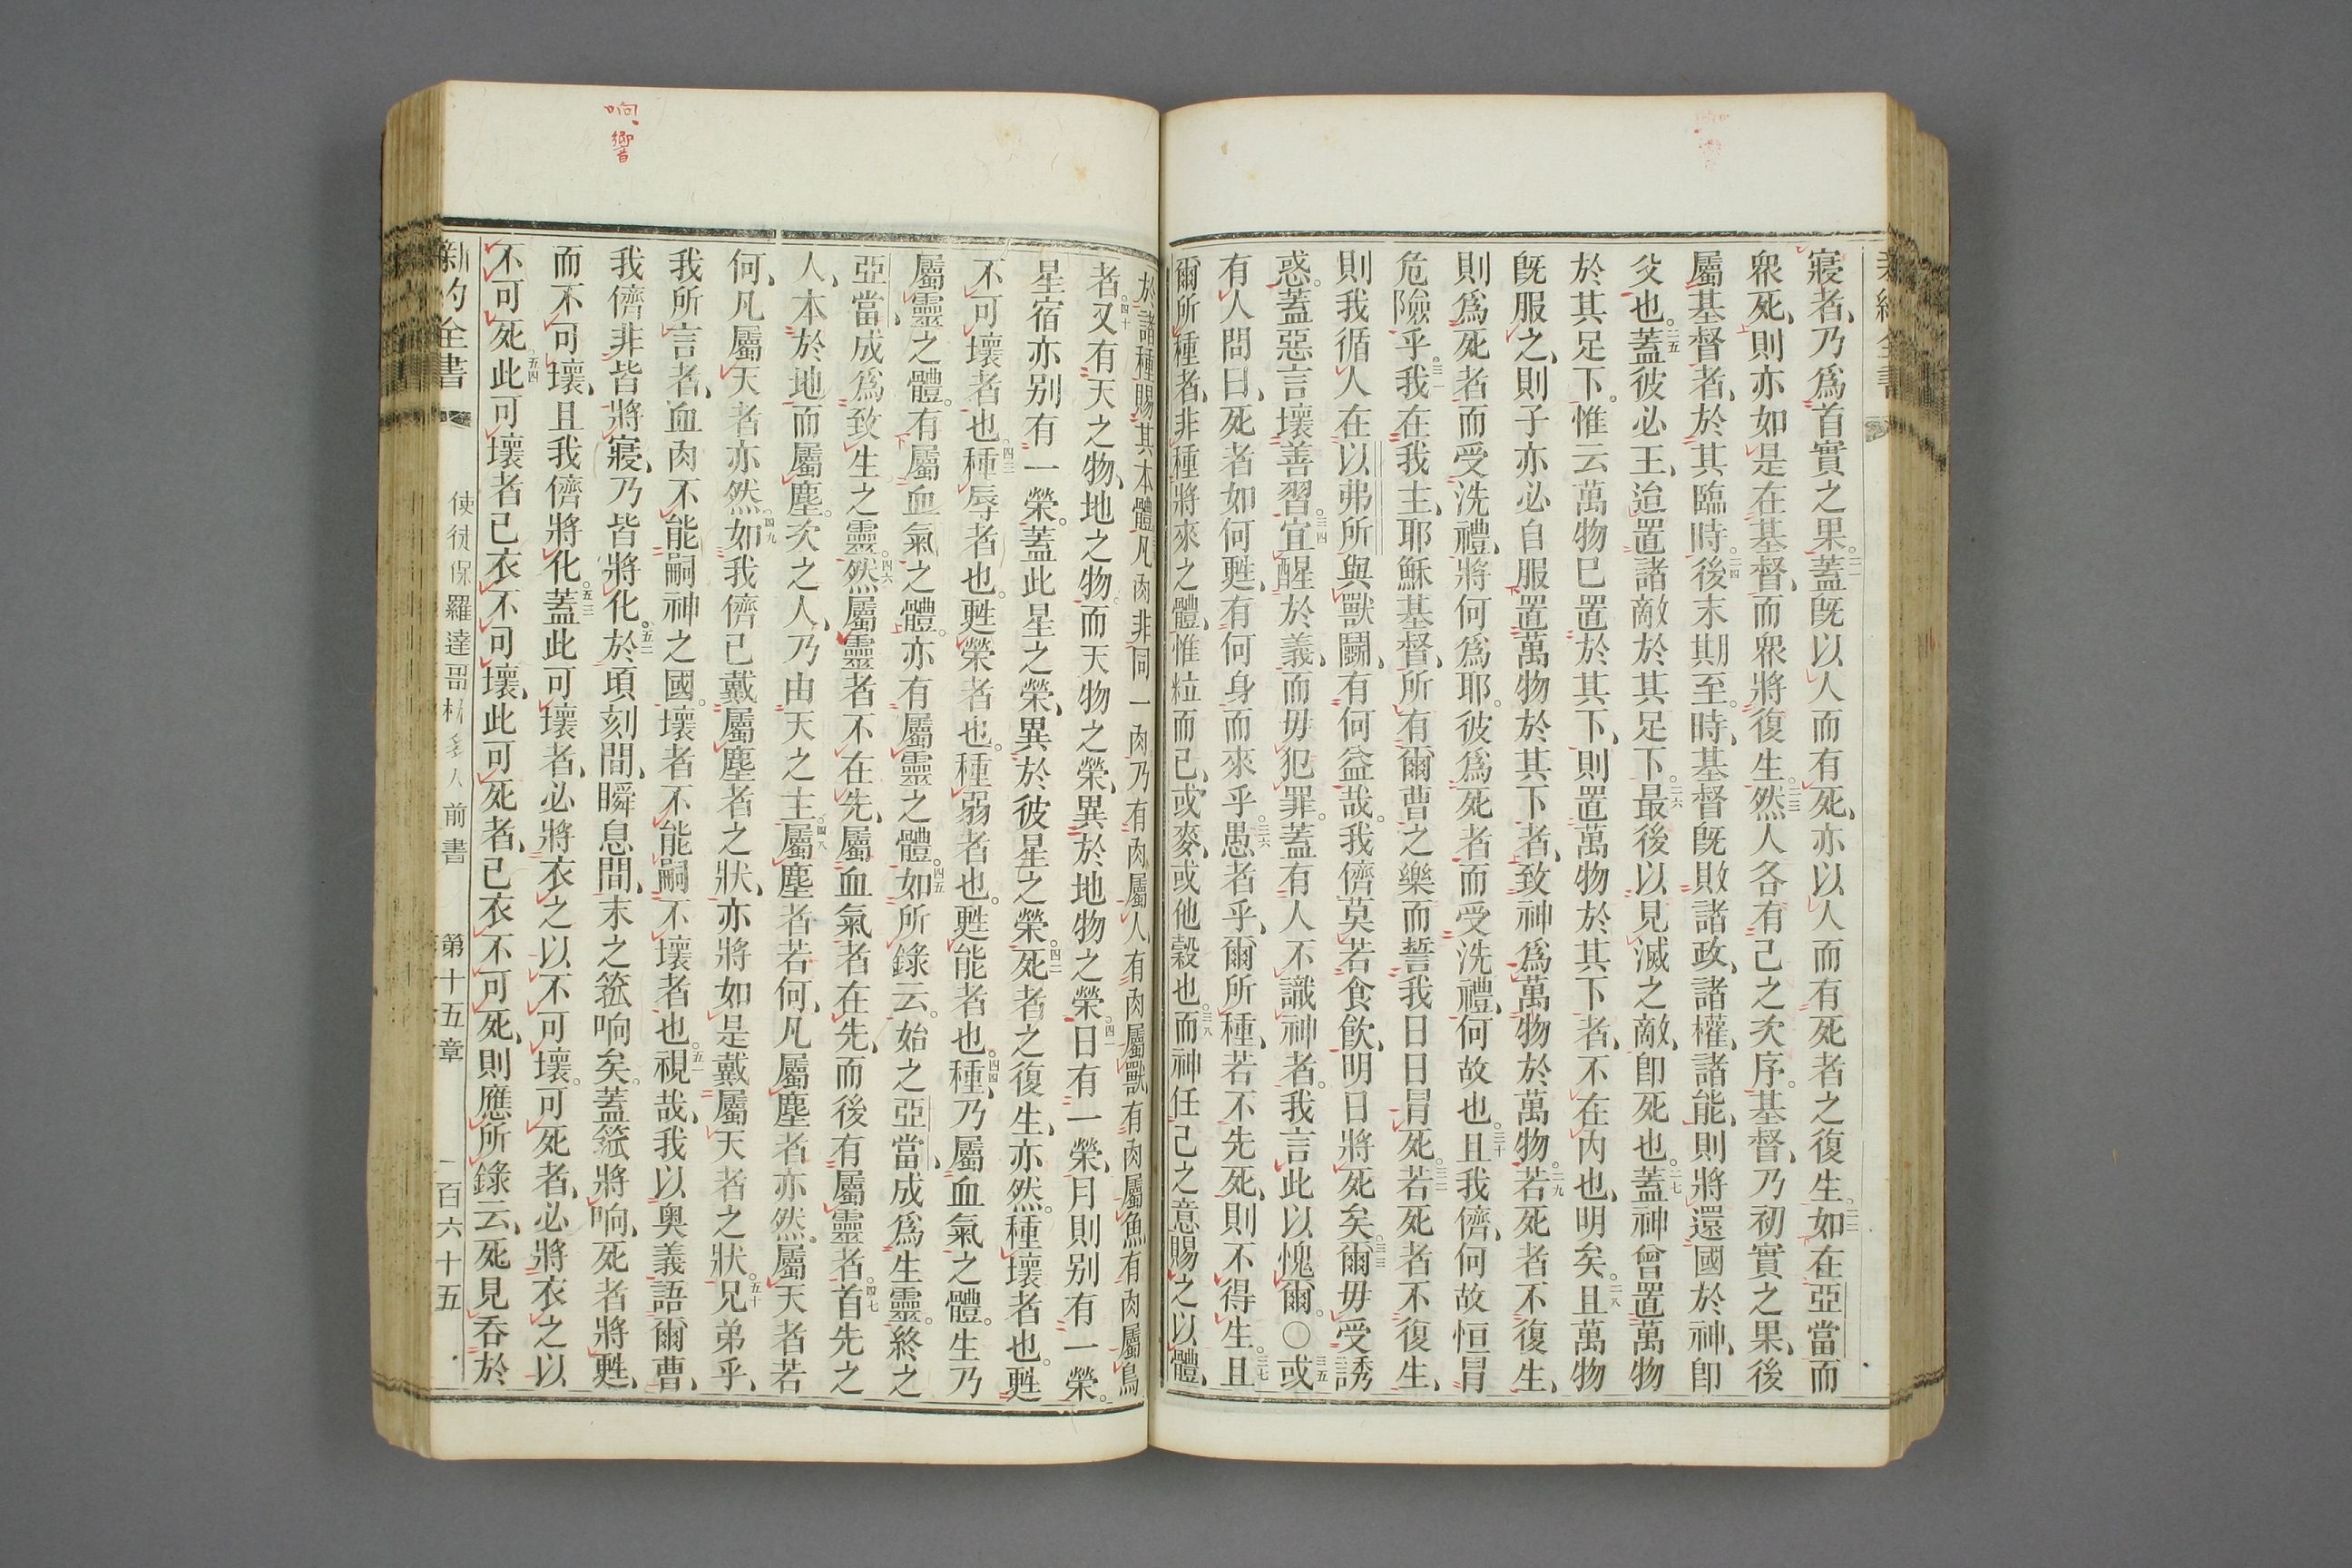 寢者、乃爲首實之果。二一蓋旣以人而有死、亦以人而有死者之復生。二二如在亞當而
衆死、則亦如是在基督、而衆將復生。二三然人各有己之次序。基督、乃初實之果、後
屬基督者、於其臨時。二四後末期至。時、基督旣敗諸政、諸權、諸能、則將還國於神、卽
父也。二五蓋彼必王、迨置諸敵於其足下。二六最後以見滅之敵、卽死也。二七蓋神曾置萬物
於其足下。惟云萬物巳置於其下、則置萬物於其下者、不在內也、明矣。二八且萬物
旣服之、則子亦必自服置萬物於其下者、致神爲萬物於萬物。二九若死者不復生、
則爲死者而受洗禮、將何爲耶。彼爲死者而受洗禮、何故也。三十且我儕、何故恒冒
危險乎。三一我在我主、耶穌基督、所有爾曹之樂而誓我日日冒死。三二若死者不復生、
則我循人在以弗所與獸鬬、有何益哉。我儕莫若食飮、明日將死矣。三三爾毋受誘
惑。蓋惡言壞善習。三四宜醒於義、而毋犯罪。蓋有人不識神者。我言此以愧爾。〇三五或
有人問曰、死者如何甦、有何身而來乎。三六愚者乎、爾所種、若不先死、則不得生。三七且
爾所種者、非種將來之體、惟粒而已、或麥、或他穀也。三八而神任己之意賜之以體、
於諸種賜其本體凡肉非同一肉乃有肉屬人有肉屬獸有肉屬魚有肉屬鳥
者。四十又有天之物、地之物。而天物之榮、異於地物之榮。四一日有一榮、月則别有一榮。
星宿亦别有一榮。蓋此星之榮、異於彼星之榮。四二死者之復生、亦然。種壞者也。甦
不可壞者也。四三種辱者也。甦榮者也。種弱者也。甦能者也。四四種、乃屬血氣之體。生乃
屬靈之體。有屬血氣之體。亦有屬靈之體。四五如所錄云。始之亞當、成爲生靈。終之
亞當、成爲致生之靈。四六然屬靈者不在先、屬血氣者在先、而後有屬靈者。四七首先之
人、本於地而屬塵。次之人、乃由天之主。四八屬塵者若何、凡屬塵者亦然。屬天者若
何、凡屬天者亦然。四九如我儕已戴屬塵者之狀、亦將如是戴屬天者之狀。五十兄弟乎、
我所言者、血肉不能嗣神之國。壞者不能嗣不壞者也。五一視哉、我以奥義語爾曹、
我儕非皆將寢、乃皆將化。五二於頃刻間、瞬息間、末之箛响矣。蓋箛將响、死者將甦、
而不可壞、且我儕將化。五三蓋此可壞者、必將衣之以不可壞。可死者、必將衣之以
不可死。五四此可壞者已衣不可壞、此可死者、已衣不可死、則應所錄云、死見吞於
新約全書 使徒保羅達哥林多人前書 第十五章 一百六十五
响、響